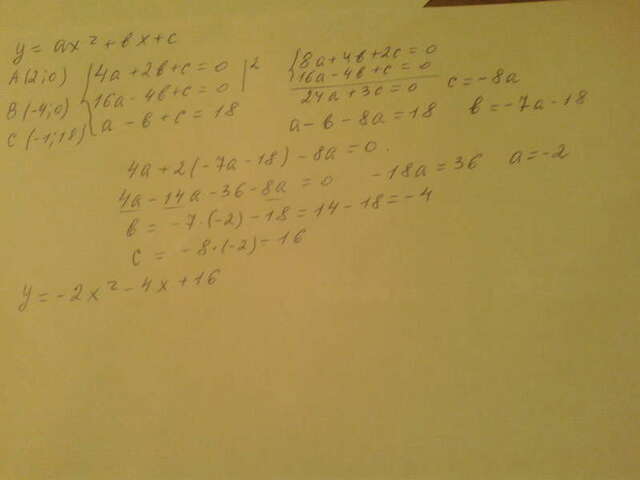 y = ax² + вx + c
A(2;0) {4a + 2в + c = 0 |2
B(-4;0) 16a - 4в + c = 0
C(-1;18) a - в + c = 18
{8a + 4в + 2c = 0
16a - 4в + c = 0
24a + 3c = 0 c = -8a
a - в - 8a = 18 в = -7a - 18
4a + 2(-7a - 18) - 8a = 0.
4a - 14a - 36 - 8a = 0 -18a = 36 a = -2
в = -7·(-2) - 18 = 14 - 18 = -4
c = -8·(-2) = 16
y = -2x² - 4x + 16